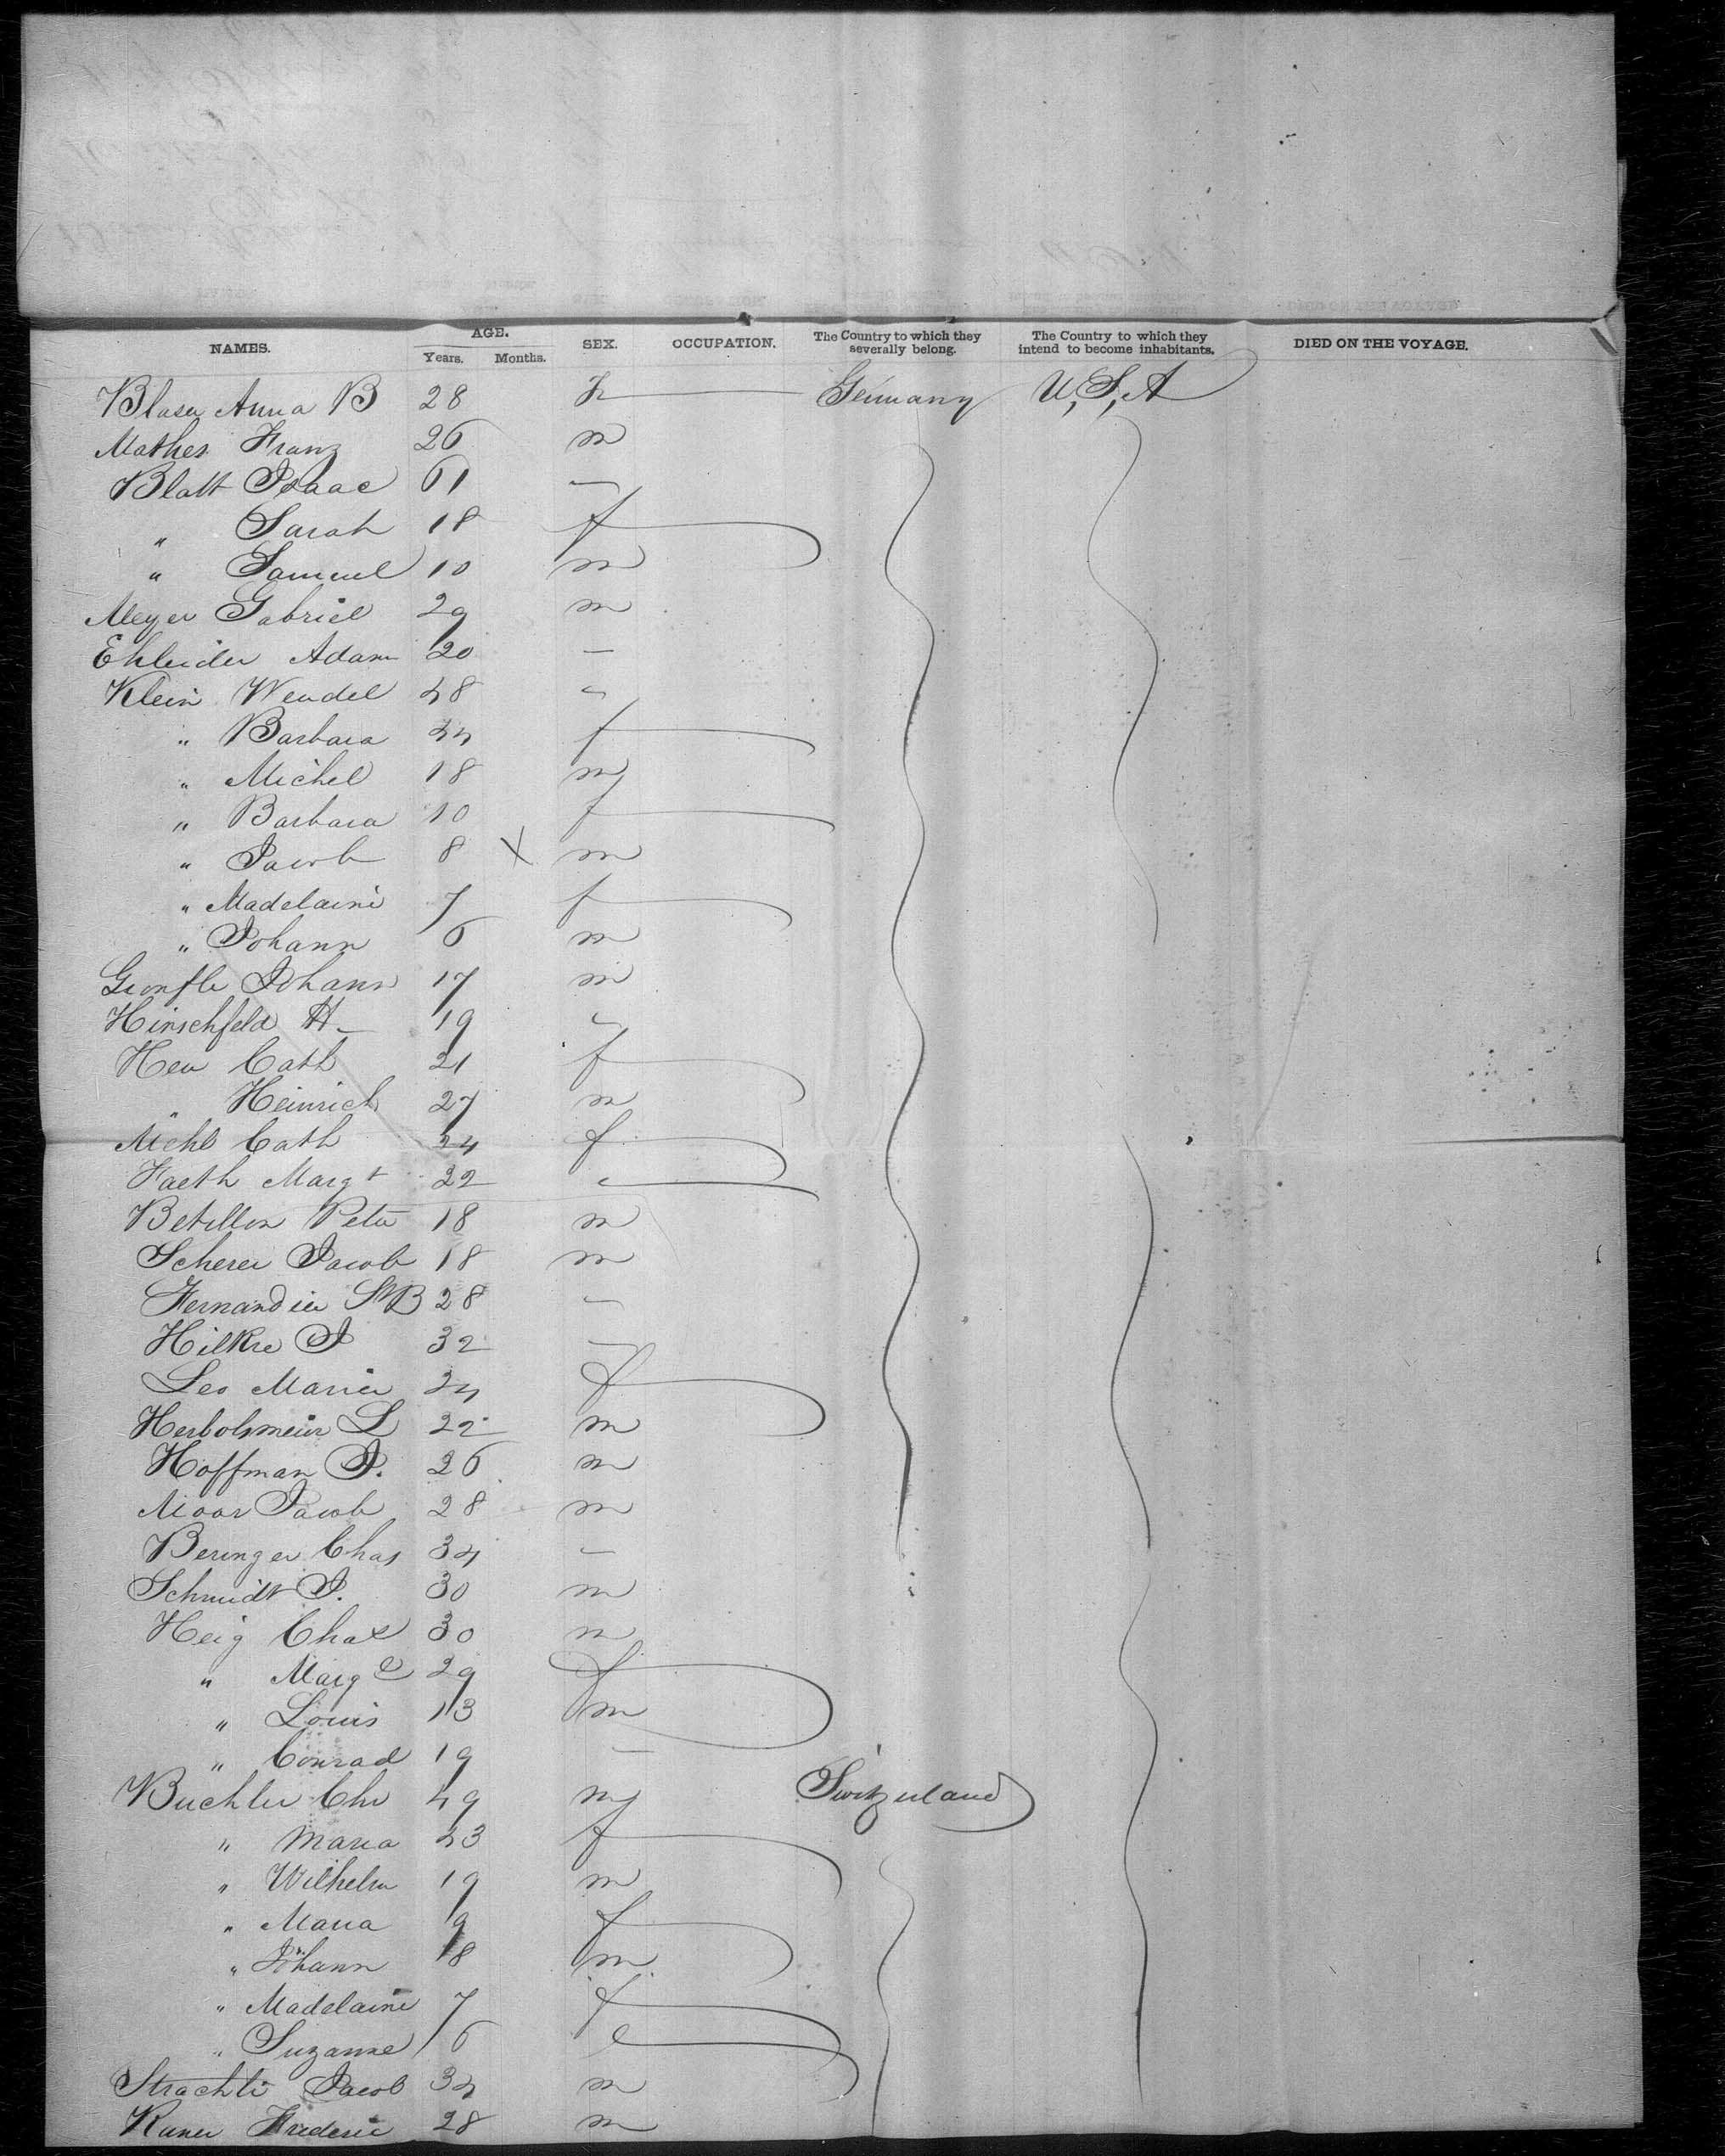 NAMES. AGE. Years. Months. SEX. OCCUPATION. The Country to which they severally belong. The Country to which they intend to become inhabitants. DIED ON THE VOYAGE.
Anna B 28 Germany U,S,A
Mathes Franz 26 m
Blatt Isaac 61 —
" Sarah 18 f
" Samuel 10 m
Meyer Gabriel 29 m
Adam 20 —
Klein Wendel 48 "
" Barbara 44 f
" Michel 18 m
" Barbara 10 f
" Jacob 8 X m
" Madelaine 7 f
" Johann 6 m
Johann 17 m
Hirschfeld H 19 "
Cath 21 f
" Heinrich 27 m
Cath 24 f
Faeth Margt 22 "
Peter 18 m
Scherer Jacob 18 m
28 —
J 32 —
Leo Maria 24 f
L 22 m
Hoffman J. 26 m
Jacob 28 m
Beringer Chas 34 —
Schmidt J. 30 m
Heig Chas 30 m
" Marge 29 f
" Louis 13 m
" Conrad 19 —
Buchler Chr 49 m Switzerland
" Maria 43 f
" Wilhelm 19 m
" Maria 9 f
" Johann 18 m
" Madelaine 7 f
" Suzanne 6 "
Jacob 34 m
Frederic 28 m